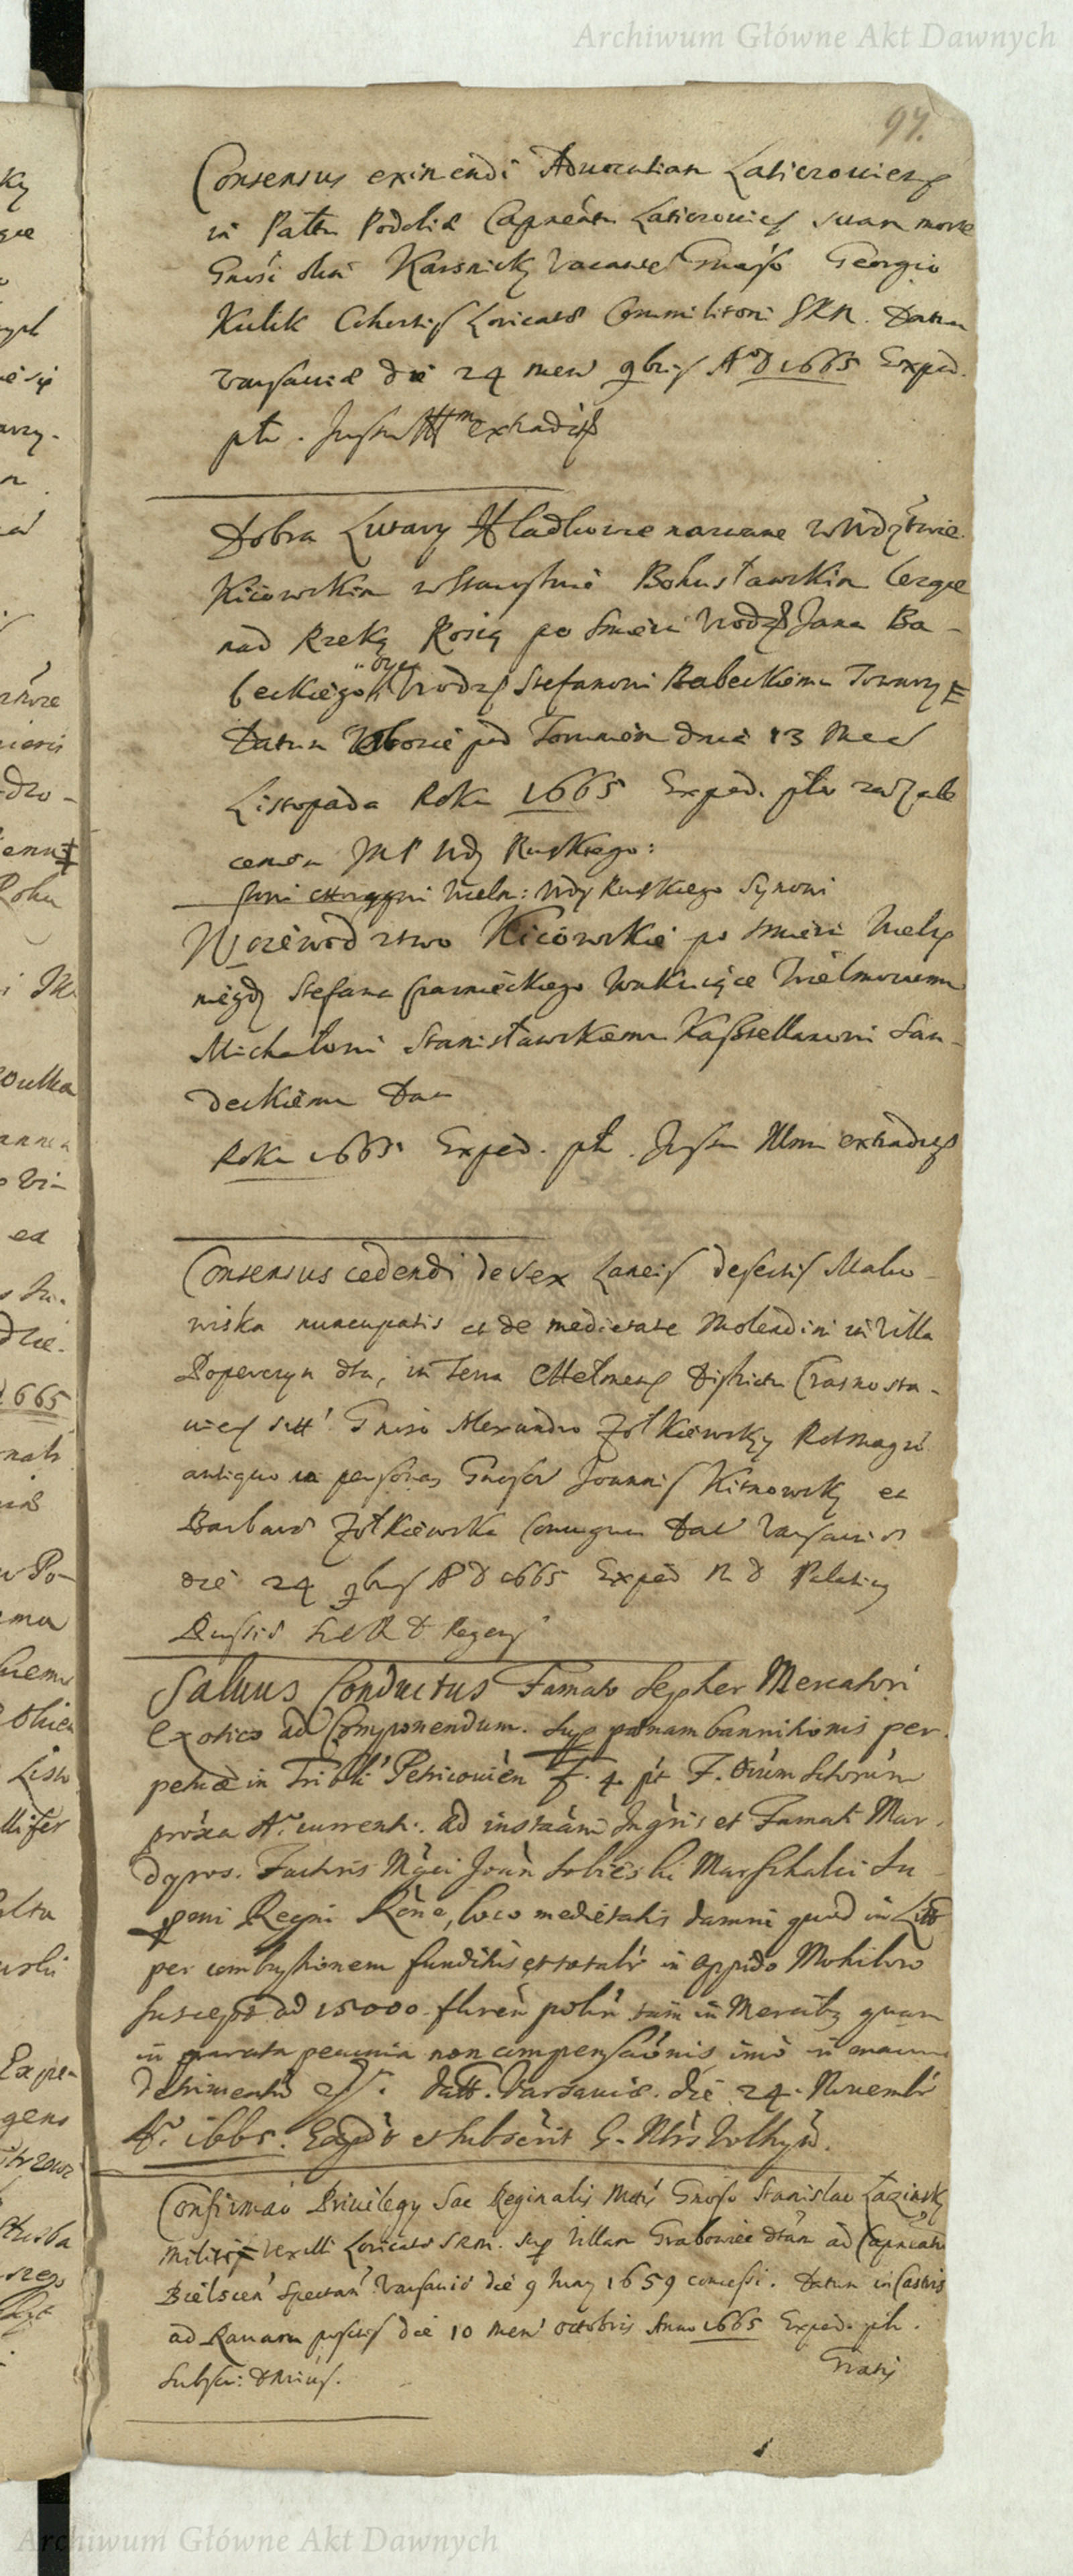 Archiwum Główne Akt Dawnych
97.
Consensus eximendi Advocatiam Laticzoviens
in Pāttu Podoliæ Capneātu Laticzovien vacan morte
Gnōsi olim Karsnicky vacante Gnōso Georgio
Kulik Cohortis Loricatæ Commilitoni SRM. Datum
Varsaviæ die 24 men 9bris A°D 1665 Exped.
pīn. Jussu extradit
Dobra Lutary Hladkowie nazwane w Wdztwie
Kiiowskim w Starostwie Bohusławskim lezące
nad Rzeką Rosią po smierci Urodz Jana Ba-
beckiego Urodz Stefanowi Babeckiemu Towarzy
Datum w Obozie pod Toruniem dnia 13 Mca
Listopada Roku 1665 Exped. pīn za zale
ceniem JMP Wdy Ruskiego:
Wieln: Wdy Ruskiego Synowi
Woiewodztwo Kiiowskie po smierci Wielm
niegdy Stefana Czarnieckiego wakuiące Wielmoznemu
Michałowi Stanisławskiemu Kasztellanowi San-
deckiemu Dan
Roku 1665 Exped. pīn. Jussu Illmi extradit
Consensus cedendi de sex Laneis desertis Malio-
wiska nuncupatis et de medietate Molendini in Villa
Poperczyn dta, in Terra Chelmens Districtu Crasnosta-
vien sitt Gnōso Alexandro Zołkiewsky Rotmagro
antiquo in personas Gnosor Joannis Kitnowsky et
Barbaræ Zołkiewska Coniugum Dat Varsaviæ
die 24 9bris A D 1665 Exped R D Palatini
Russiæ
Salvus Conductus Famato Sepher Mercatori
Exotico ad Componendum. Sup pœnam bannitionis per-
petuæ in Tribli Petricovien F. 4 pt F. Ōium Sctorum
proxa A° current. ad instaām Ingris et Famati Mar-
dyros. Factoris Mgci Joān Sobieski Marschalci Su-
premi Regni Rōne, loco medietatis damni quod in Litt
per combustionem funditus et totaliť in oppido Mohilovo
suscepto ad 15000 floren polň tam in Mercib quam
in parata pecunia non compensaōnis imo in maius
detrimento Datt. Varsaviæ. die 24. Novembř
A°. 1665. Expdr et subscrit G. Ntrs Volhyn.
Confirmaō Privilegy Sac Reginalis Mttis Gnōso Stanislao Łazinsky
Militis vexilli Loricatæ SRM. sup Villam Grabowiec dtam ad Capneatū
Bielscen Spectan Varsaviæ die 9 May 1659 concessi. Datum in Castris
ad Ravam positis die 10 Men Octobris Anno 1665 Exped. pīn.
Subscr: DRius.
Gratis
Archiwum Główne Akt Dawnych